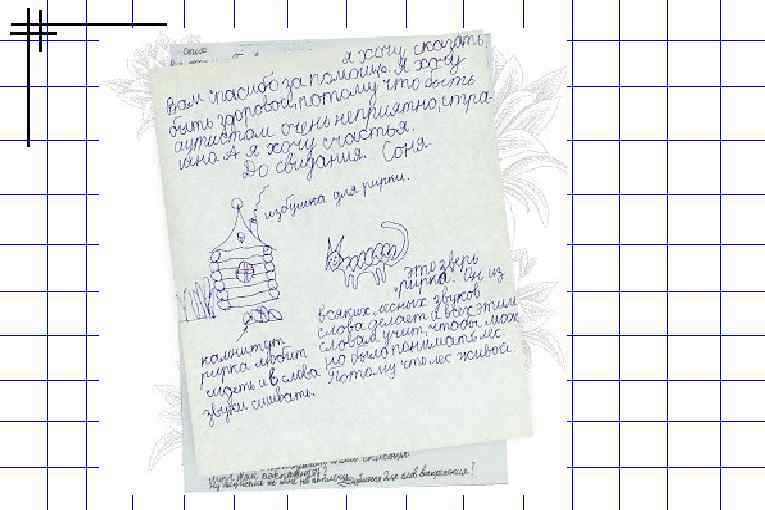 я хочу сказать
Вам спасибо за помощь. Я хочу
быть здоровой, потому что быть
аутистом очень неприятно, стра-
шно. А я хочу счастья.
До свидания. Соня.
избушка для рирки.
это зверь
рирка. Он из
всяких лесных звуков
слова делает и всех этим
словам учит, чтобы мож
но было понимать лес.
Потому что лес живой
камни тут
рирка любит
сидеть и в слова
звуки сшивать.